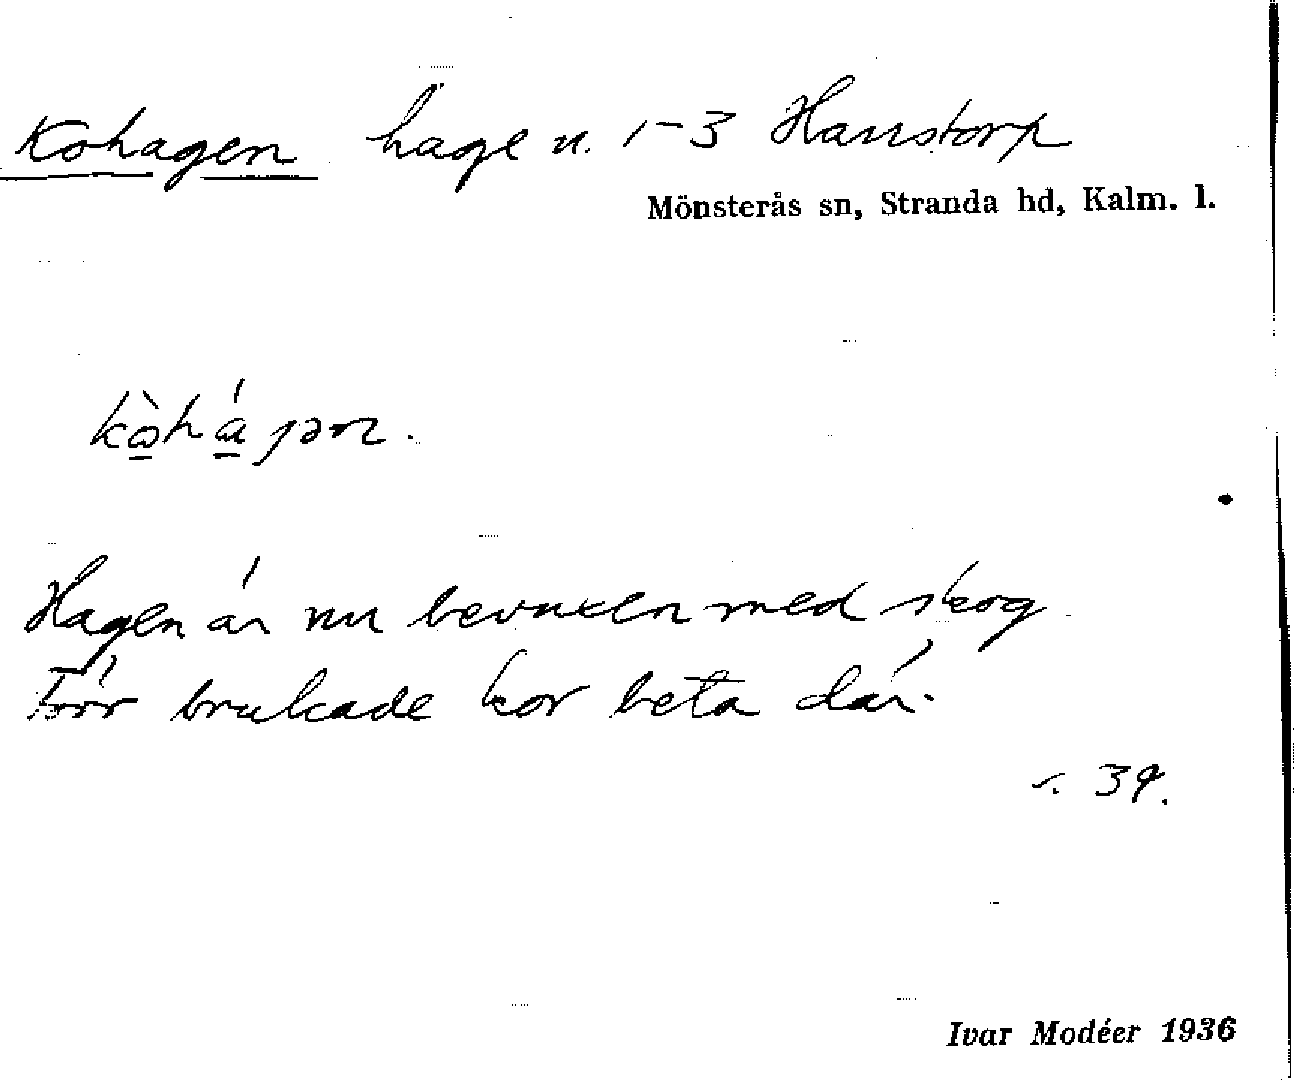 Kohagen hage n. 1-3 Hanstorp
Mönsterås sn, Stranda hd, Kalm. l.
Hagen är nu bevuxen med skog
Förr brukade kor beta där.
s. 39.
Ivar Modéer 1936